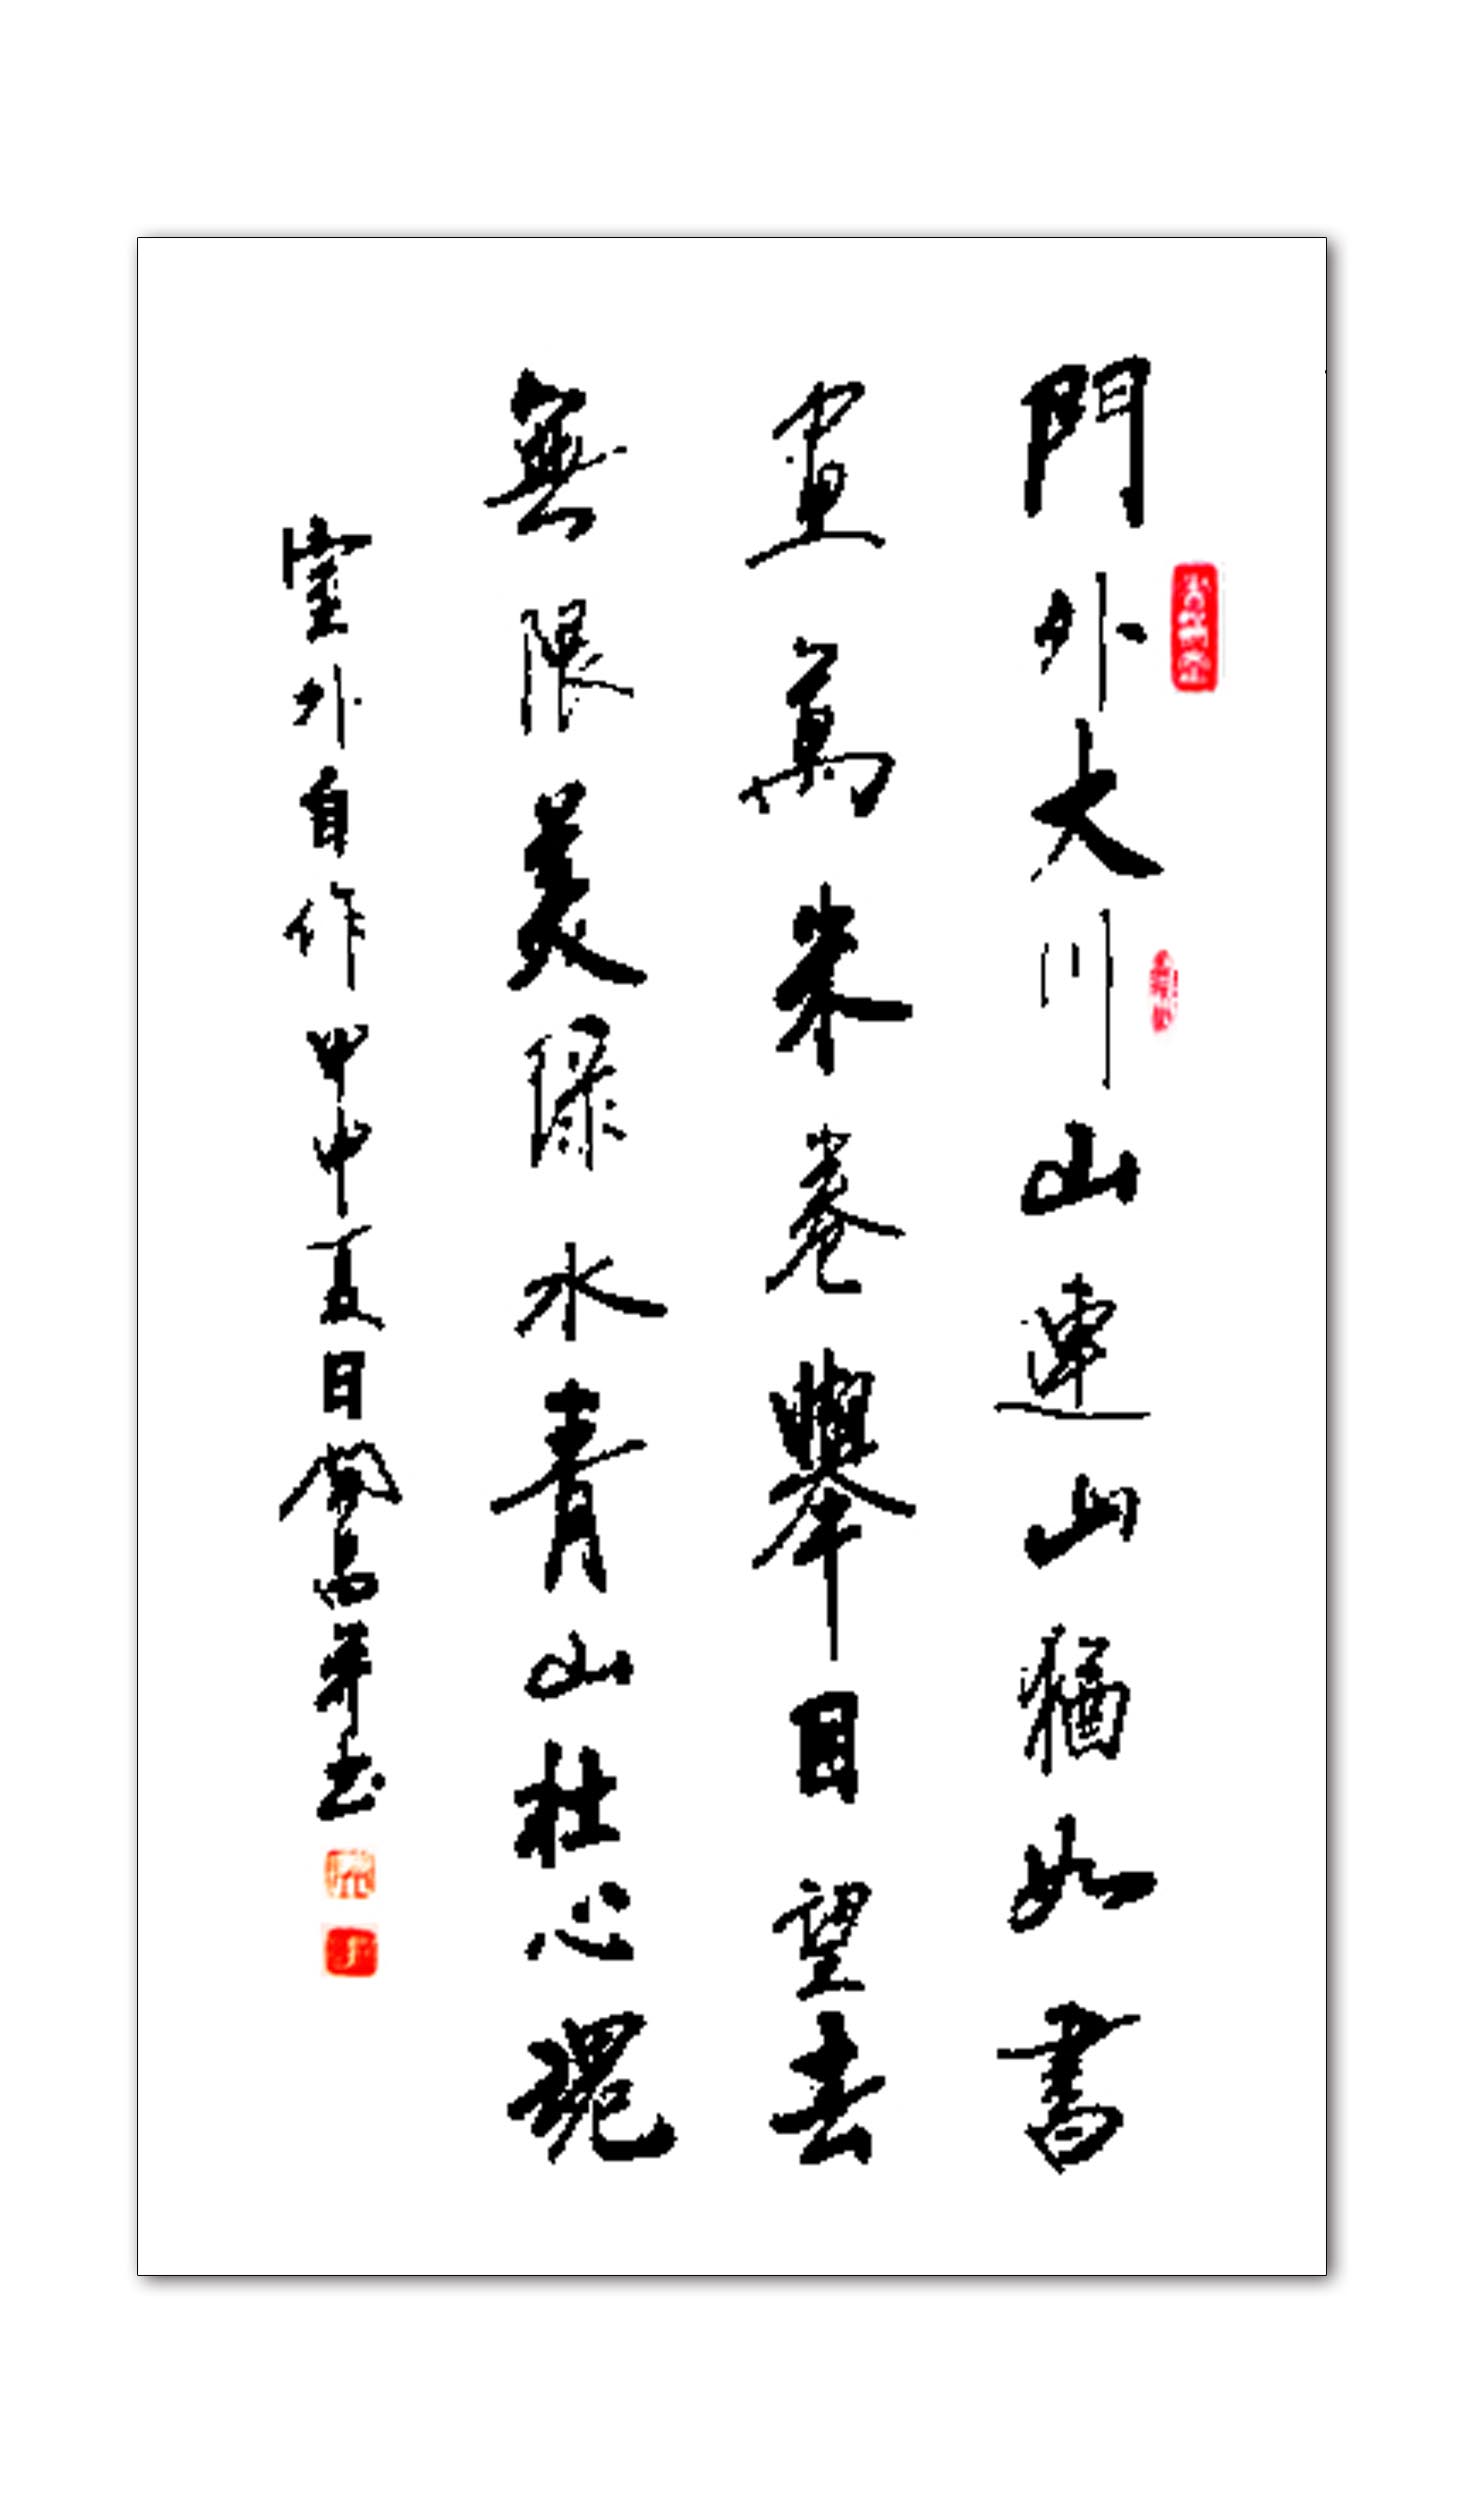 門外大川山連山猶如書
里萬來卷舉目望去
無限美綠水青山杜心魂
室外自作甲申夏日
平书